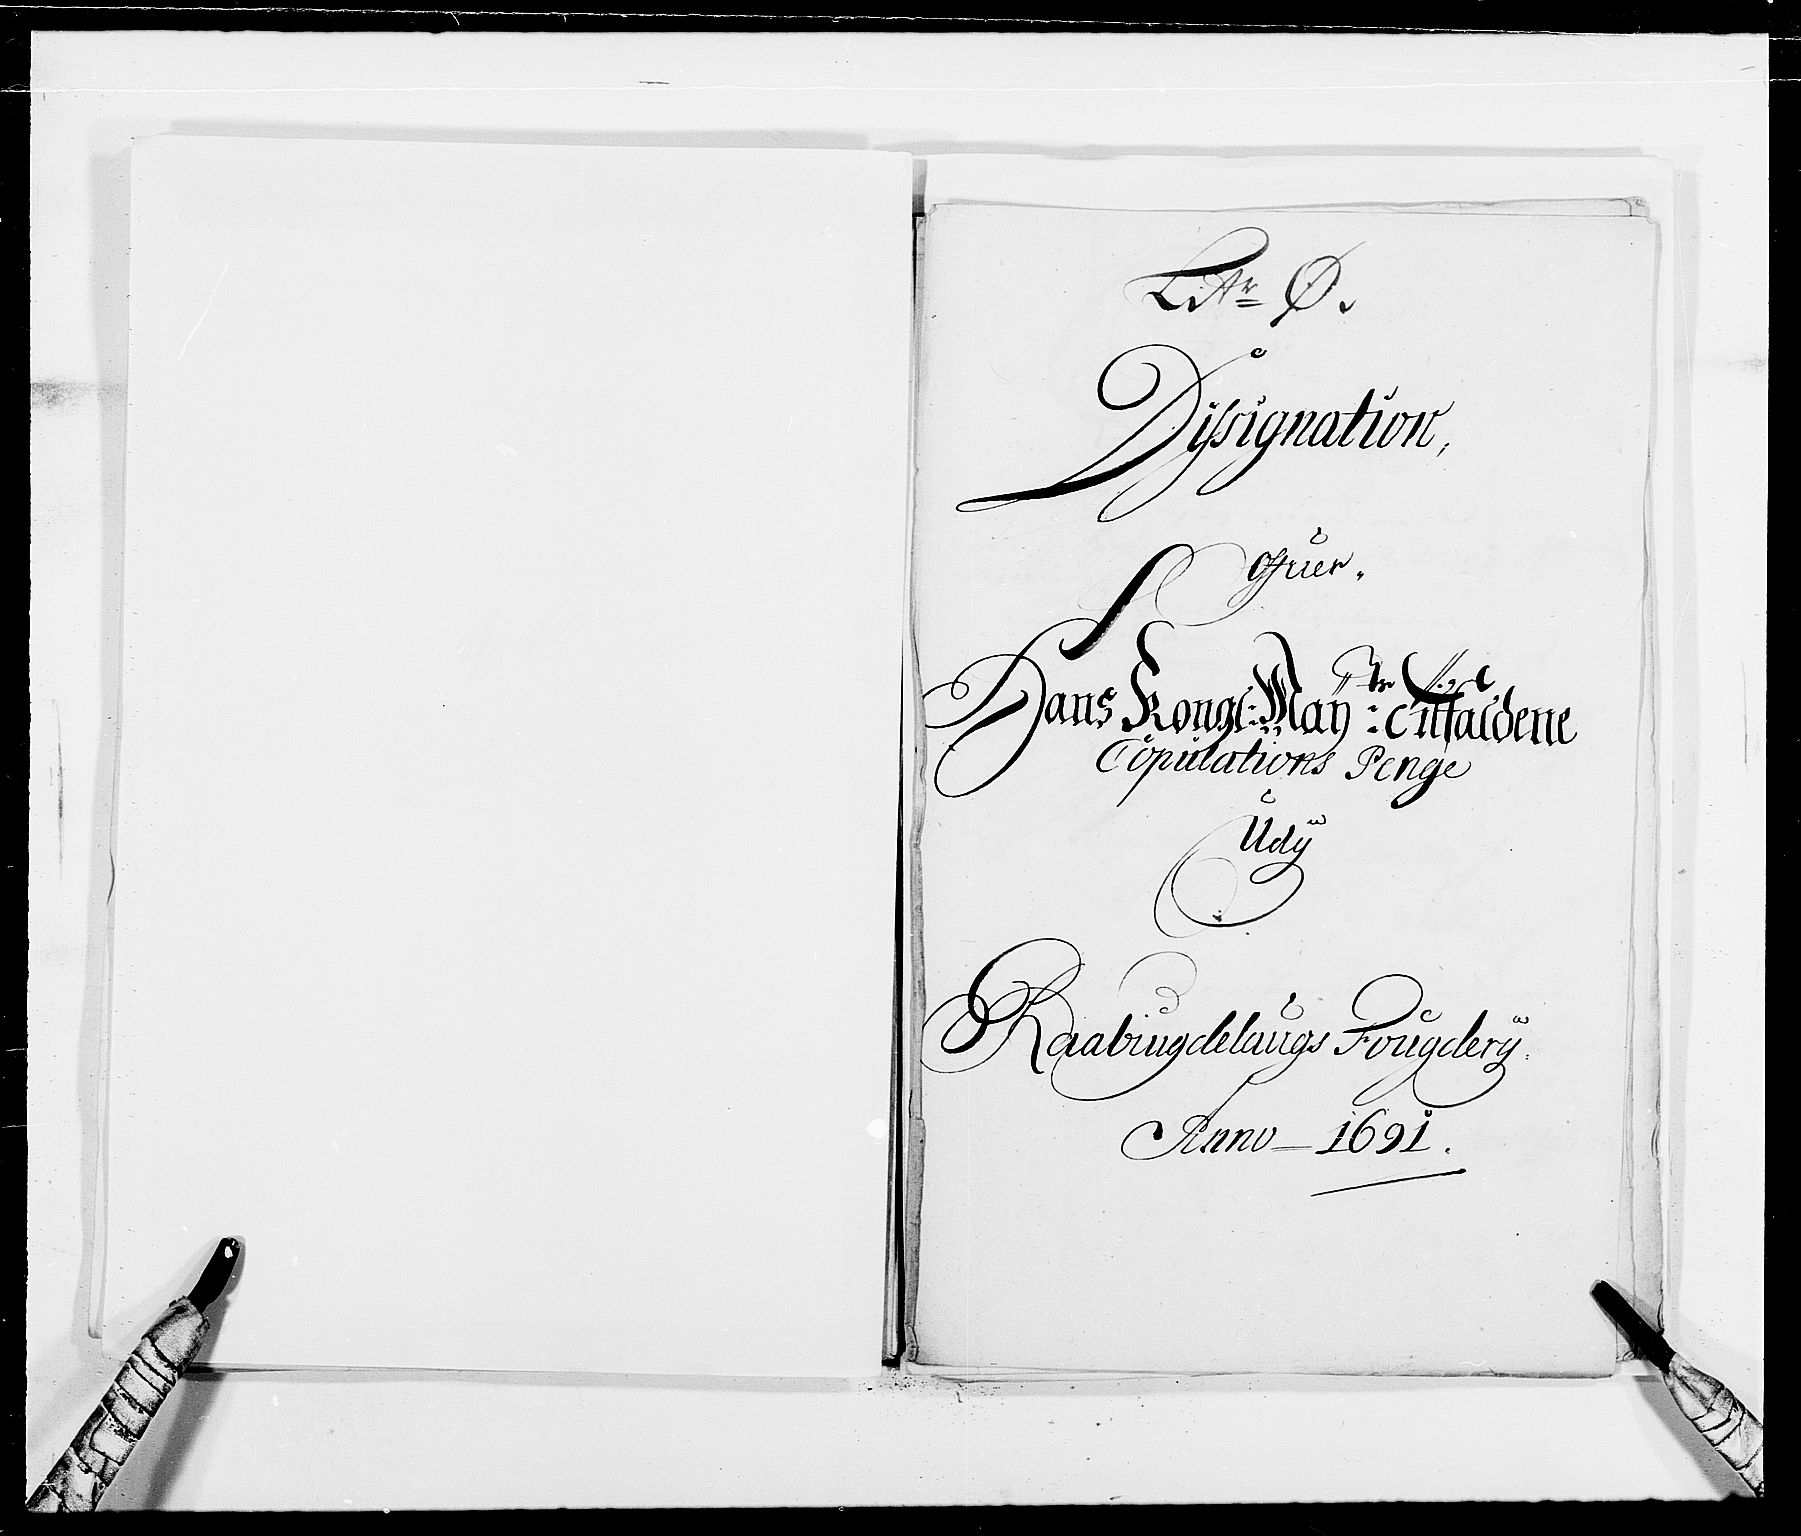 Littr Ø.
Dissignation,
Offuer.
Hans Kongl: Maÿtz: Tilfaldene
Copulations Penge
Udÿ
Raabÿugdelaugs Fougderÿ.
Anno - 1691.